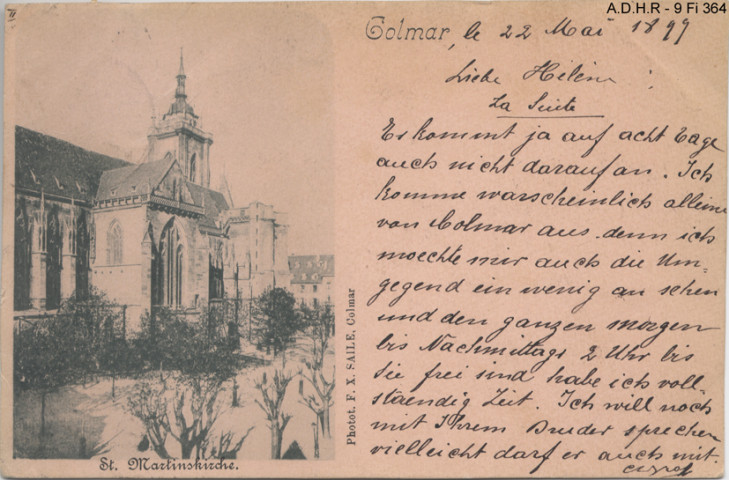 A.D.H.R - 9 Fi 364
Colmar, le 22 Mai 1899
Liebe Hélène!
La Suite
Es kommt ja auf acht Tage
auch nicht darauf an. Ich
komme warscheinlich allein
von Colmar aus denn ich
moechte mir auch die Um=
gegend ein wenig an sehen
und den ganzen morgen
bis Nachmittags 2 Uhr bis
Sie frei sind habe ich voll=
staendig Zeit. Ich will noch
mit Ihrem Bruder sprechen
vielleicht darf er auch mit.
Photot. F. X. SAILE, Colmar
St. Martinskirche.